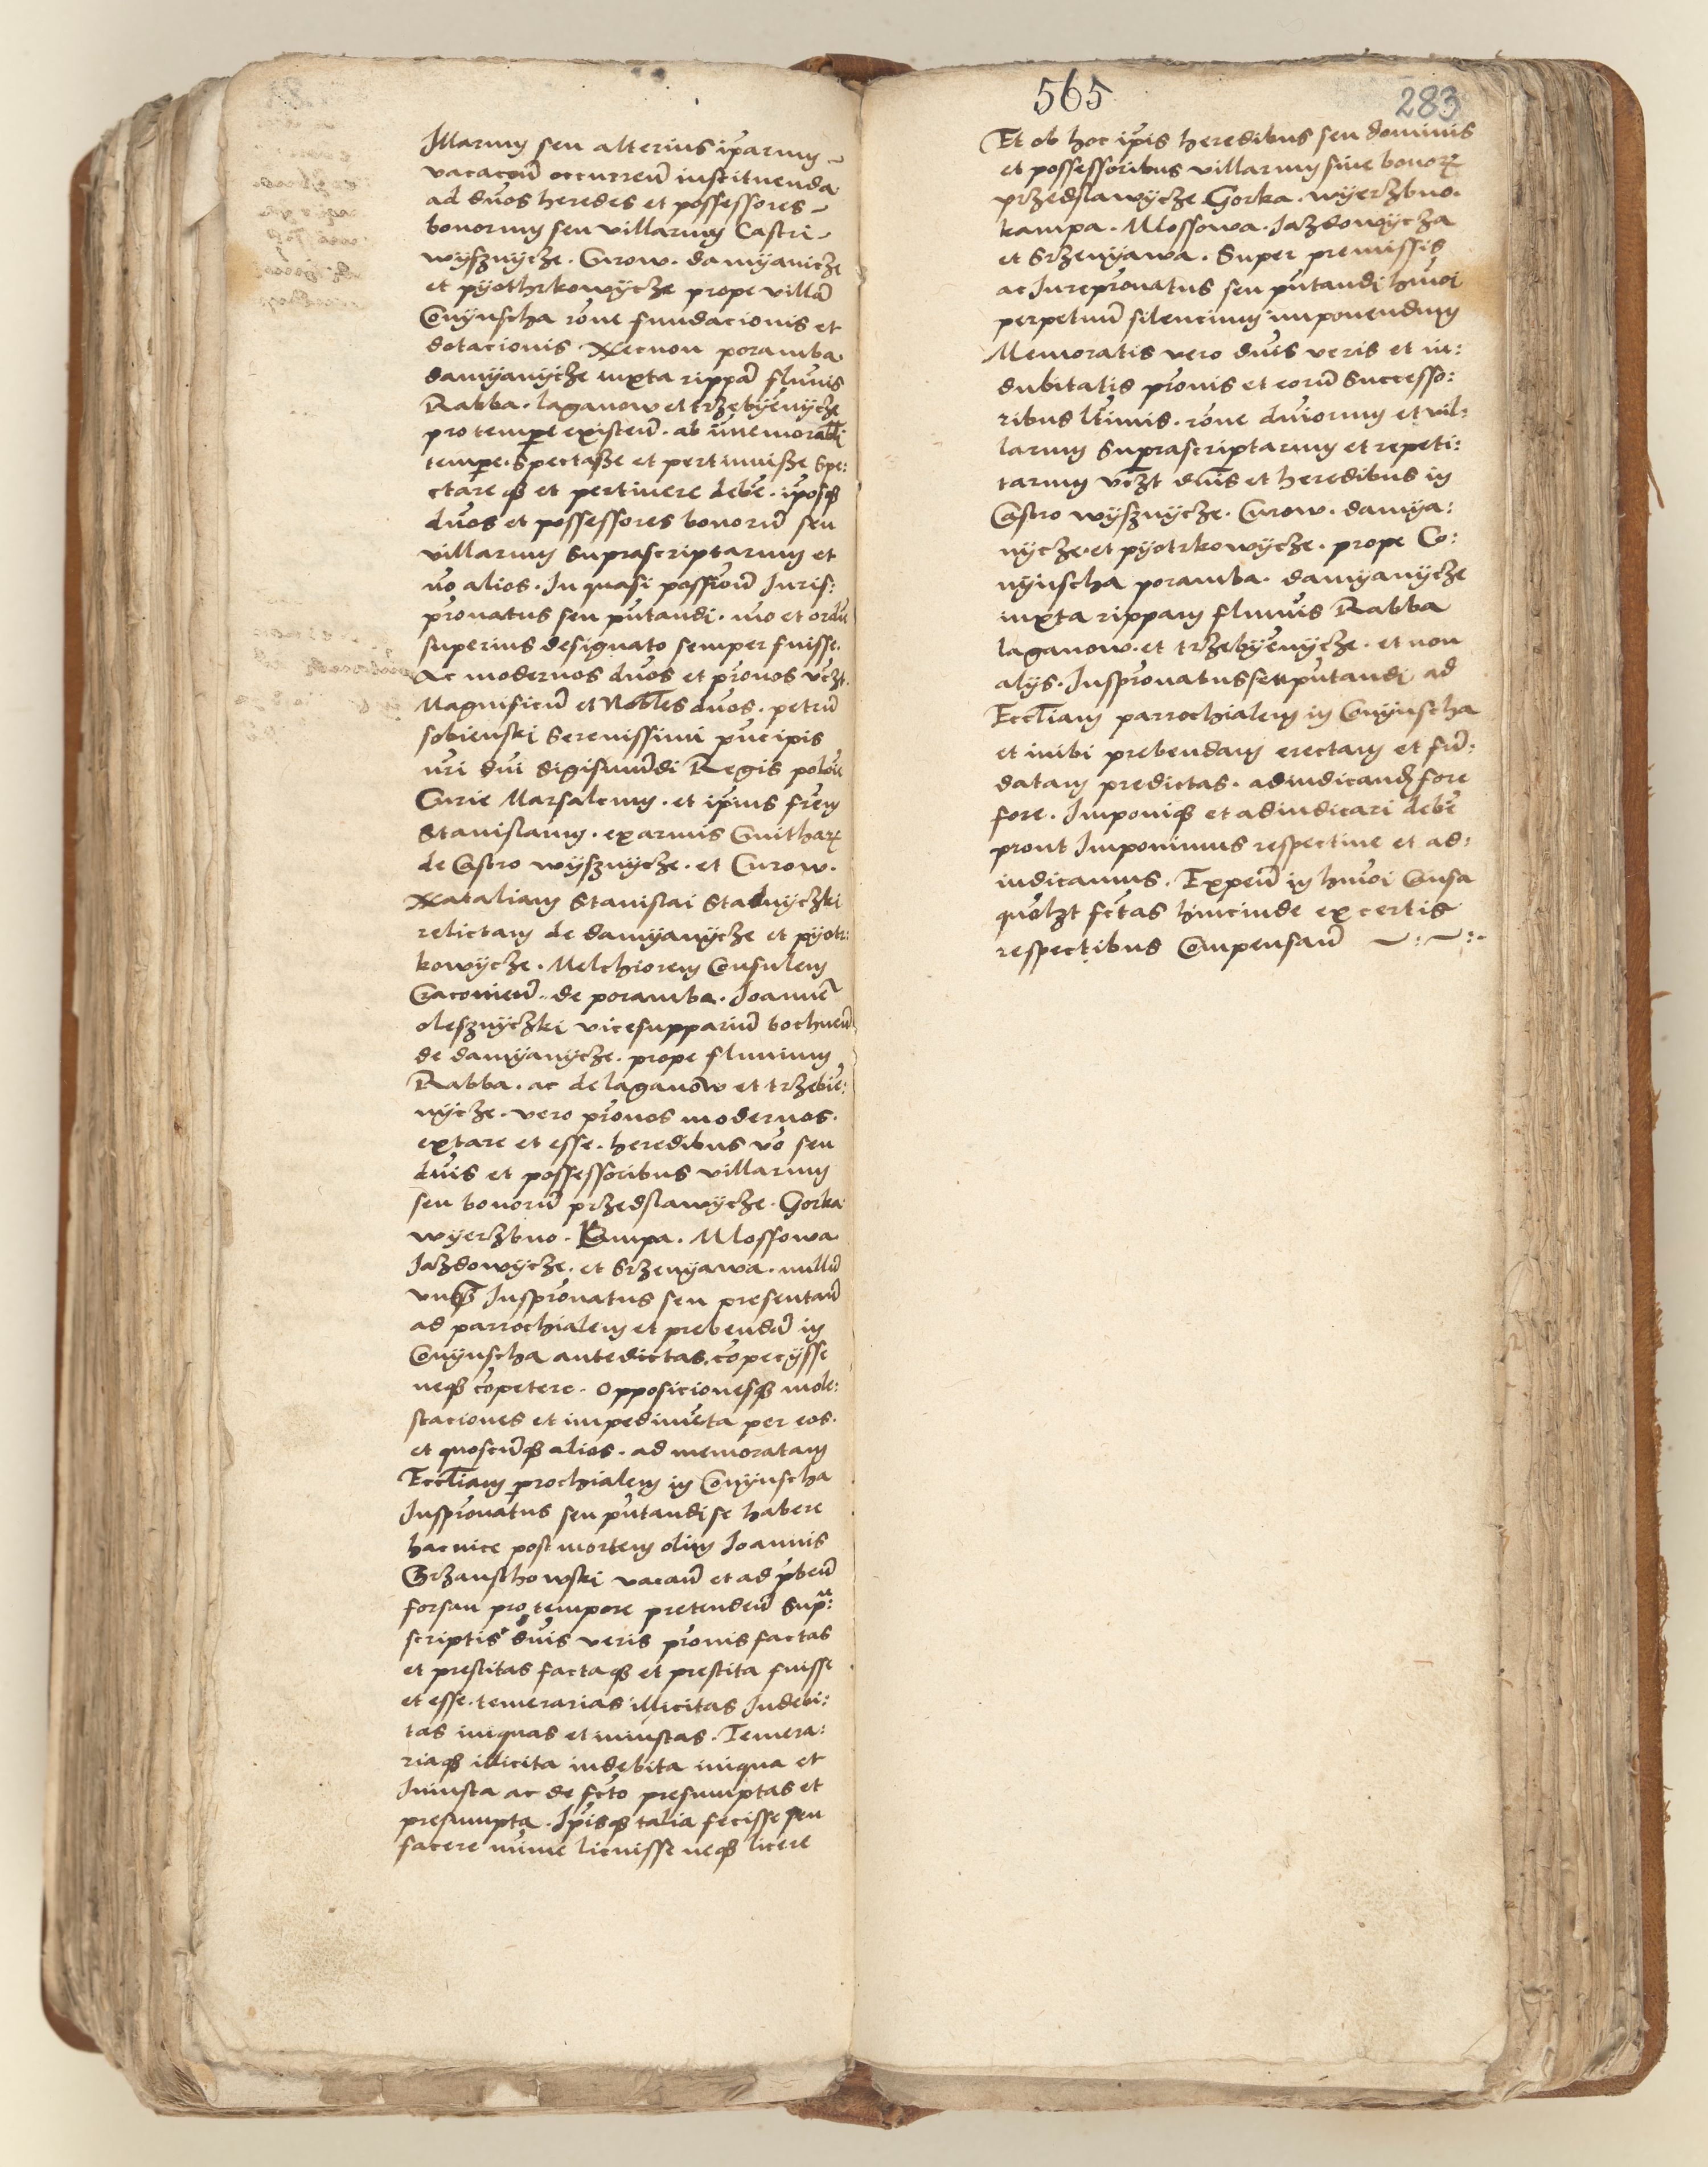 Illarum seu alterius ip̄arum
vacacoū occurreū instituenda
ad dn̄os heredes et possessores
bonorum seu villarum Castri
wyszнycze . Curow . damyanicze
et pyothrkowycze prope villā
Conyuscha rōne fundacionis et
dotacionis Necnon poramba
damyanycze iuxta rippā fluvis
Rabba . laganow et trzebyenycze
pro tempe existeū . ab immemorabli
tempe . Spectasse et pertinuisse Spe:
ctareqȝ et pertinere debe . ip̄osqȝ
dn̄os et possessores bonorū seu
villarum Suprascriptarum et
nō alios . In quasi possioū Juris:
pronatus seu pn̄tandi . mō et ordīe
superius designato semper fuisse
Ac modernos dn̄os et pronos vczt
Magnificū et Nobles dn̄os . petrū
sobienski Serenissimi pn̄cipis
nr̄i dn̄i Sigismūdi Regis polōīe
Curie Marsalcum . et ip̄ius frēm
Stanislaum . ex armis Gvithaꝝ
de Castro wysznycze . et Curow .
Nataliam Stanislai Stadnyczki
relictam de damyanycze et pyotr:
kowycze . Melchiorem Consulem
Cracovieū . de poramba . Joannē
olesznyczki vicesuppariū bochneū
de damyanycze . prope fluuium
Rabba . ac de laganow et trzebie:
nycze . vero pronos modernos .
extare et esse . heredibus vō seu
dn̄is et possessoribus villarum
seu bonorū przedslawycze . Gorka
wyerzbno . Kampa . Mossowa
Jazdowycze . et Srzenyawa . nullū
vnqȝ Juspronatus seu presentaū
ad parrochialem et prebendā in
Conyuscha antedictas . cōpecysse
neqȝ cōpetere . Opposicionesqȝ mole:
staciones et impedimēta per eos .
et quoscūqȝ alios . ad memoratam
Eccl̄iam prochialem in Conyuscha
Juspronatus seu pn̄tandi se habere
hac vice post mortem olim Joannis
Grzanschowski vacaū et ad pbeū
forsan pro tempore pretendeū Supra:
scriptis dn̄is veris pronis factas
et prestitas factaqȝ et prestita fuisse
et esse . temerarias illicitas Indebi:
tas iniquas et iniustas . Temera:
riaqȝ illicita indebita iniqua et
Iniusta ac de fcto presumptas et
presumpta . Ip̄isqȝ talia fecisse seu
facere mīme licuisse neqȝ licere
565
283
Et ob hoc ip̄is heredibus seu dominis
et possessoribus villarum siue bonoꝝ
przedslawycze . Gorka . wyerzbno .
kampa . Mossowa . Jazdowycza
et Srzenyawa . Super premissis
ac Jurepronatus seu pn̄tandi hmōi
perpetuū silencium imponendum
Memoratis vero dn̄is veris et in:
dubitatis pronis et eorū Successo:
ribus ltimis . rōne dn̄iorum et vil:
larum Suprascriptarum et repeti:
tarum vczt dn̄is et heredibus in
Castro wysznycze . Curow . damya:
nycze . et pyotrkowycze . prope Co:
nyuscha poramba . damyanycze
iuxta rippam fluuis Rabba
laganow . et trzebyenycze . et non
alys . Juspronatus seu pn̄tandi ad
Eccl̄iam parrochialem in Conyuscha
et inibi prebendam erectam et fū:
datam predictas . adiudicandū fore
fore . Imponiqȝ et adiudicari debe
prout Imponimus respectiue et ad:
iudicamus . Expeū in hmōi Causa
quolzt fctas hincinde ex certis
respectibus Compensaū